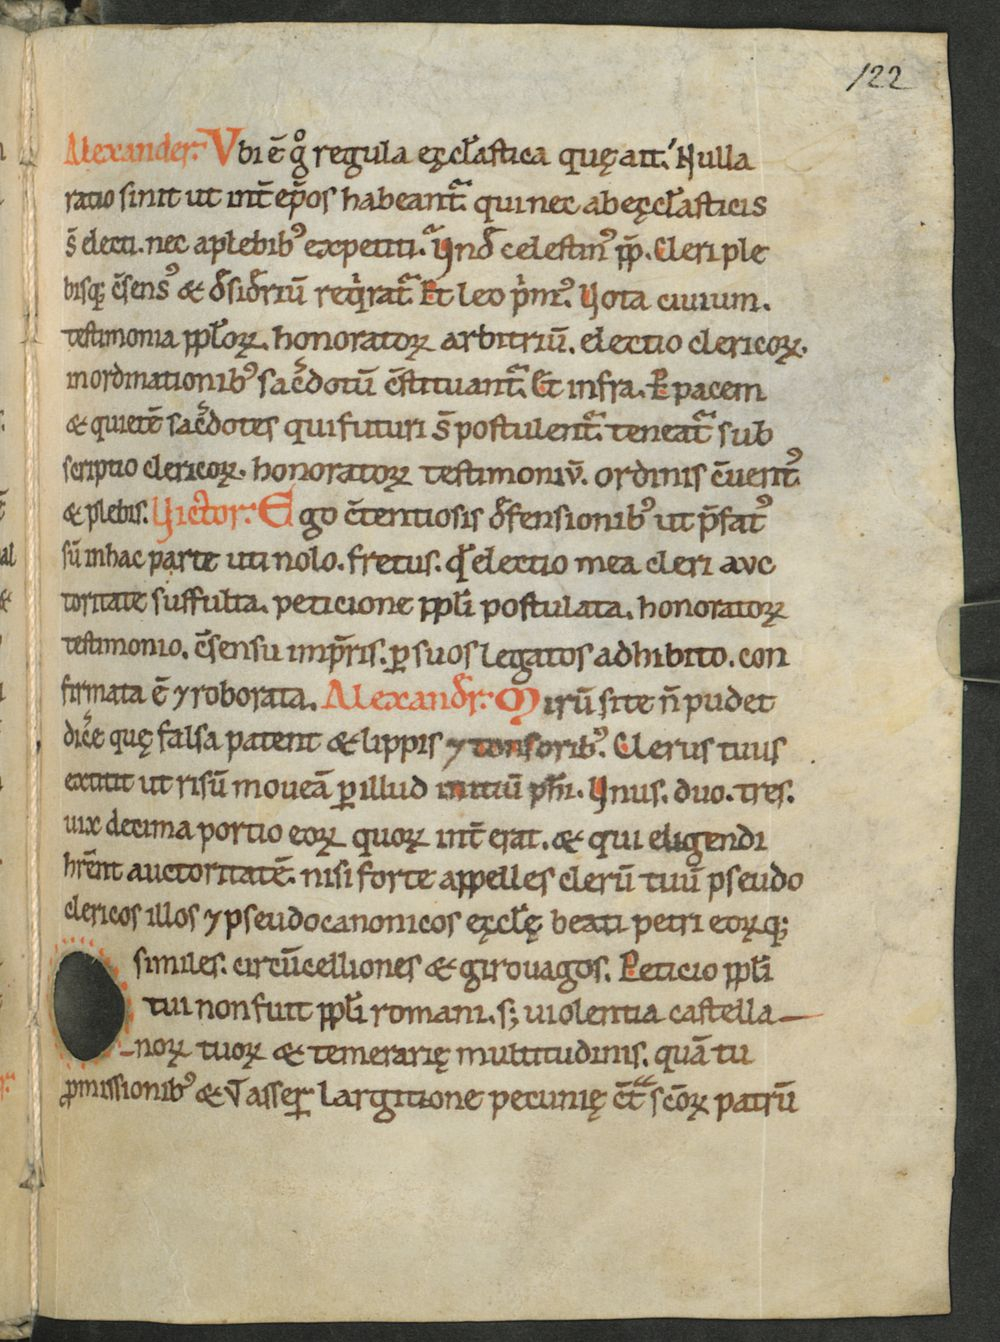 122
Alexander. Vbi ē gͦ regula ęccl̄astica quę ait. Nulla
ratio sinit ut int̄ ep̄os habeant᷑. qui nec ab ęccl̄asticis
s̄ electi. nec a plebib᷒ expetiti. Vnd̄ celestin᷒ pp̄. Cleri ple
bisq; c̄sens᷒ & d̄sid̄riū reqͥrat᷑. Et leo pͥm᷒. Vota ciuium.
testimonia ppl̄oꝝ. honoratoꝝ arbitriū. electio clericoꝝ.
in ordinationib᷒ sac̄dotū c̄stituant᷑. Et infra. P pacem
& quietē sac̄dotes qui futuri s̄ postulent᷑. teneat᷑ sub
scriptio clericoꝝ. honoratoꝝ testimoniū. ordinis c̄uent᷒.
& plebis. Victor. Ego c̄tentiosis d̄fensionib᷒ ut p̄fat᷒
sū in hac parte uti nolo. fretus. qd̄ electio mea cleri auc
toritate suffulta. peticione ppl̄i postulata. honoratoꝝ
testimonio. c̄sensu imp̄ris. ꝑ suos legatos adhibito. con
firmata ē ⁊ roborata. Alexand̄r. Mirū si te n̄ pudet
dic̄e quę falsa patent & lippis ⁊ tonsorib᷒. Clerus tuus
extitit ut risū moueā ꝑ illud initiū psl̄mi. Vnus. duo. tres.
uix decima portio eoꝝ quoꝝ int̄erat. & qui eligendi
hr̄ent auctoritatē. nisi forte appelles clerū tuū pseudo
clericos illos ⁊ pseudocanonicos ęccl̄ę beati petri eoꝝq;
similes. circūcelliones & girouagos. Peticio ppl̄i
tui non fuit ppl̄i romani. s; uiolentia castella
noꝝ tuoꝝ & temerarię multitudinis. quā tu
ꝓmissionib᷒ & T asser̄ largitione pecunię c̄tᷓ sc̄oꝝ patrū